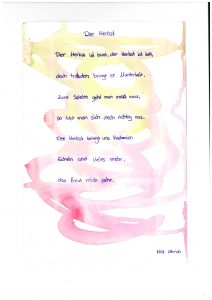 Der Herbst
Der Herbst ist bunt, der Herbst ist
doch trotzdem bringt er Munterkeit.
Zum Spielen geht man meist raus,
so tobt man sich doch richtig aus.
Der Herbst bringt uns
Eicheln und vieles mehr,
das freut mich sehr.